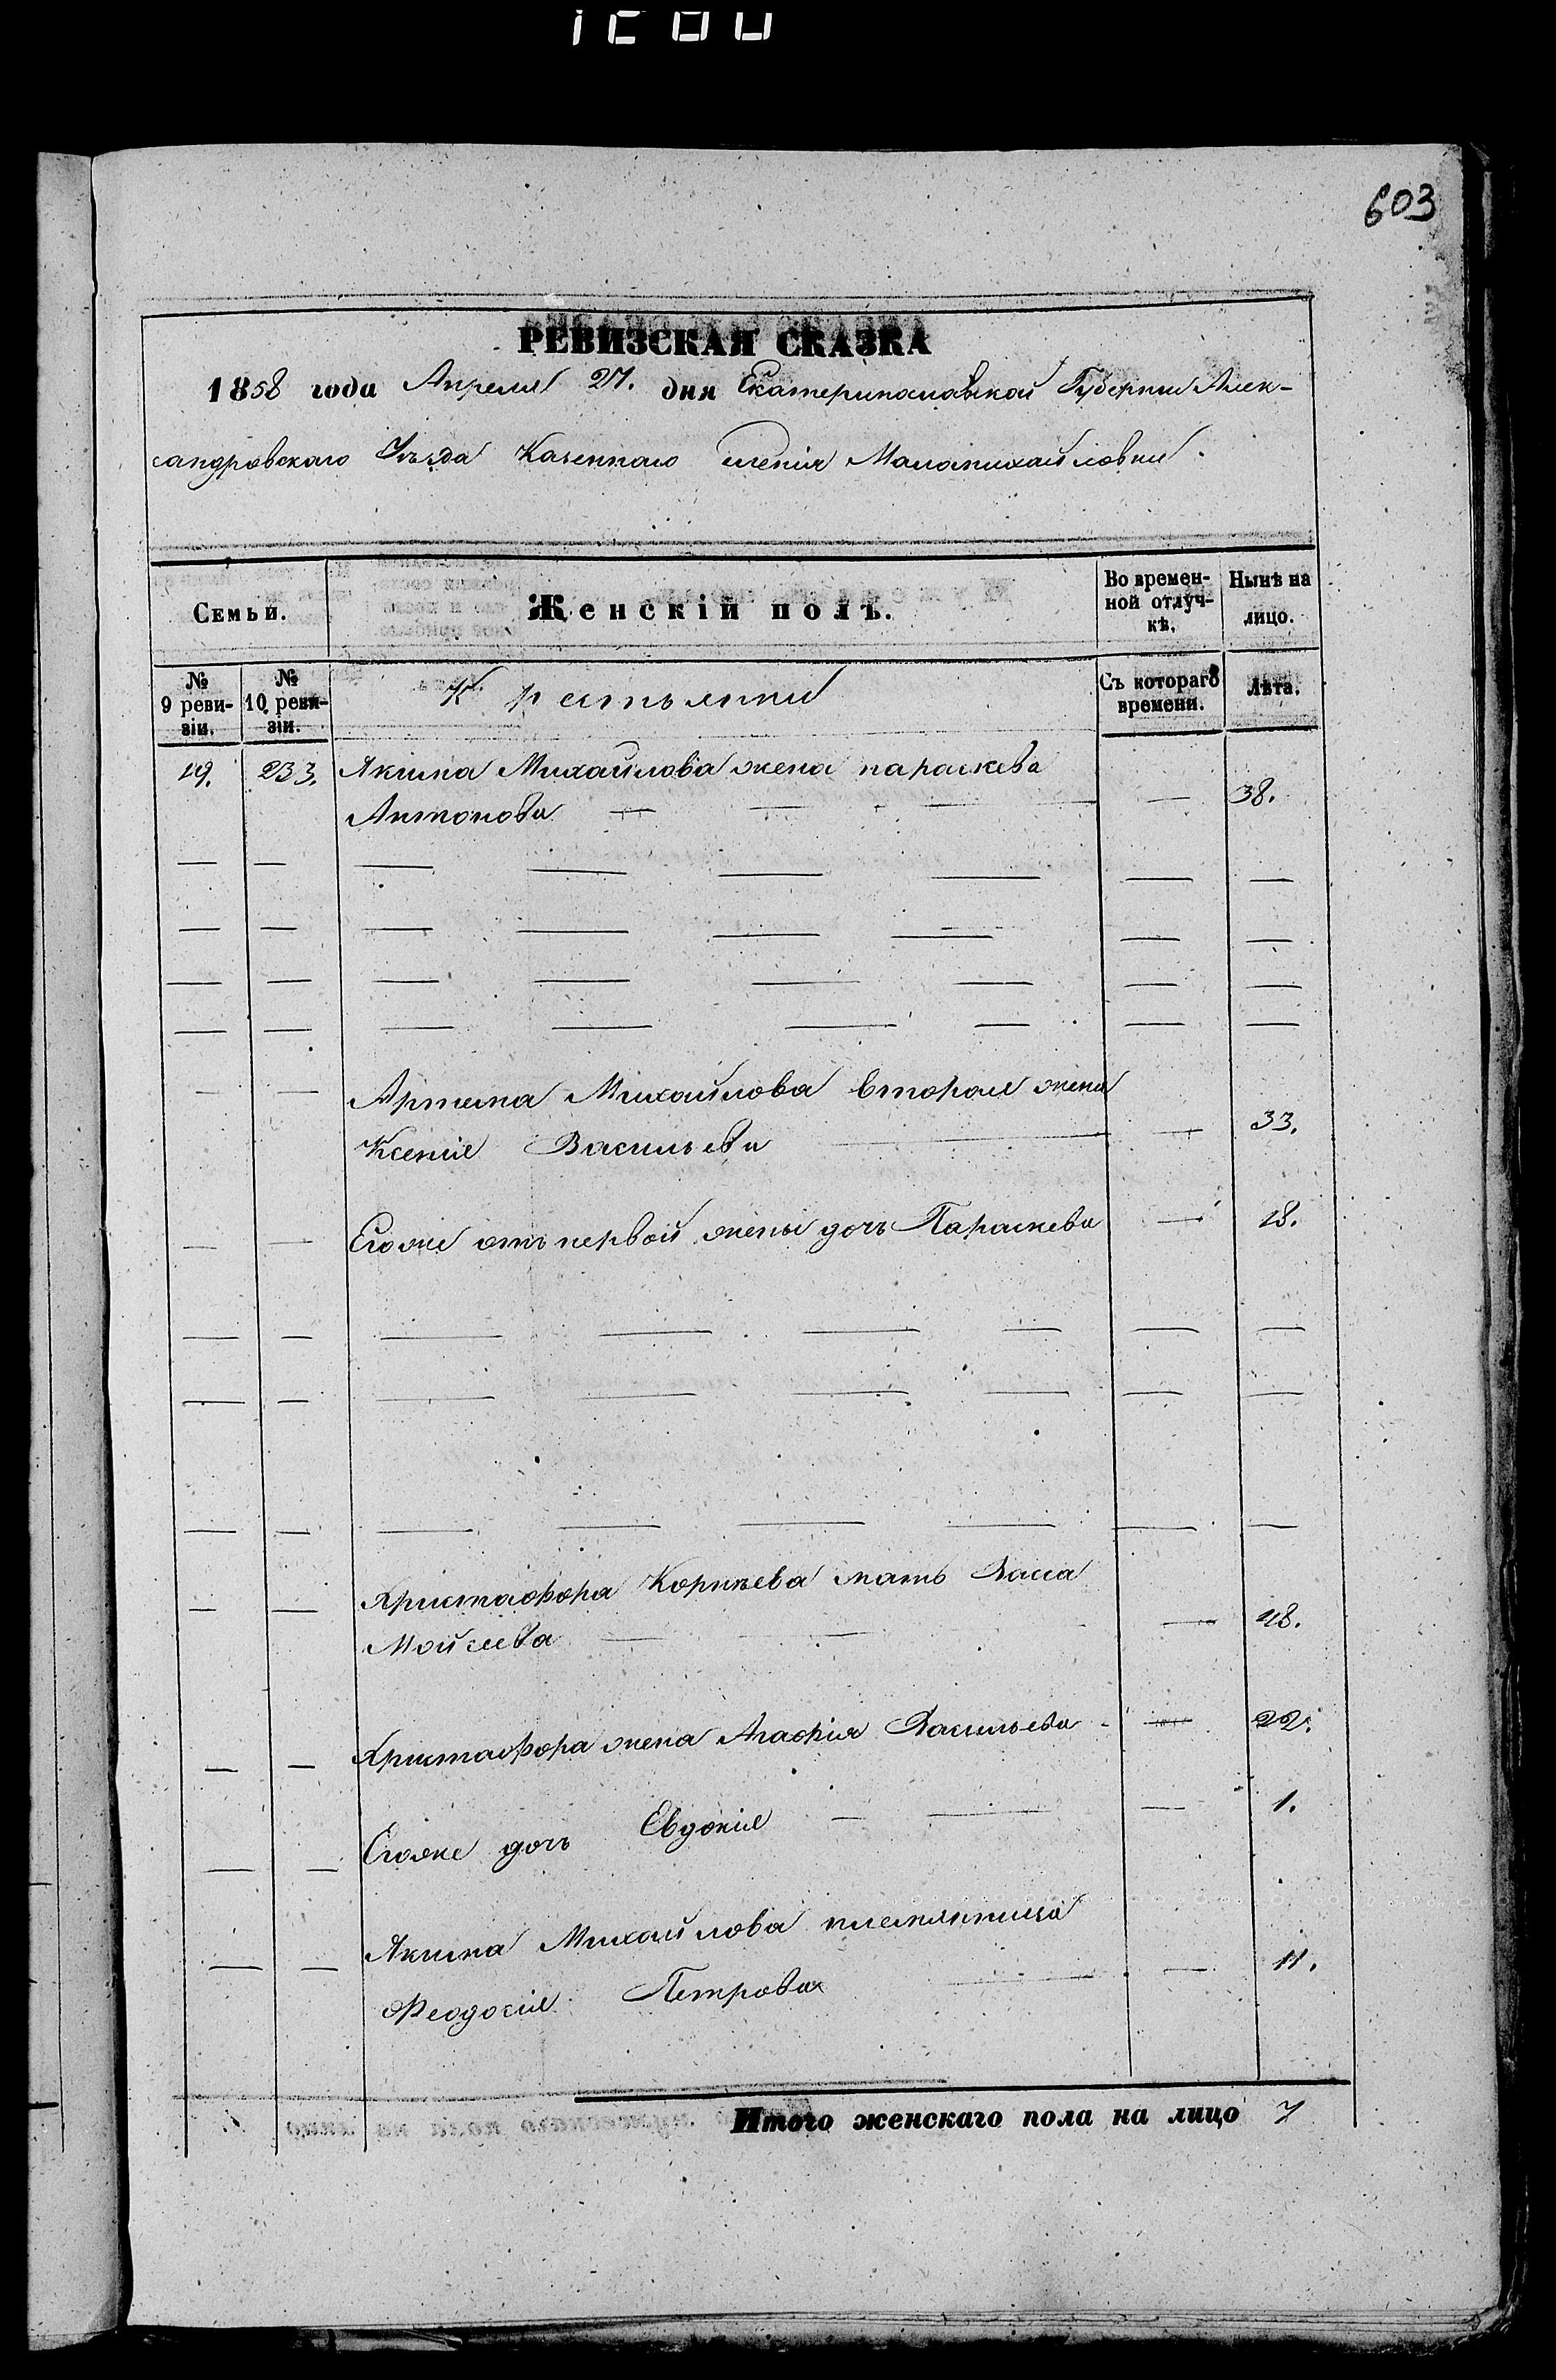 603
РЕВИЗСКАЯ СКАЗКА
1858 года Апреля 27. дня Екатеринославской Губернии Алек-
сандровскаго Уѣзда Казеннаго селенія Маломихайловки.
Семьи.
Женскій полъ.
Во времен-
ной отлуч-
кѣ.
Нынѣ на
лицо.
№
9 реви-
зіи.
№
10 реви-
зіи.
Крестьянки
Съ котораго
времени.
Лѣта.
119. 233. Якима Михайлова жена параскева
Антонова — — — — 38.
Артема Михайлова вторая жена
Ксенія Васильева — — 33.
Егоже отъ первой жены дочь Параскева — 18.
Христофора Корнѣева мать Васса
Мойсеева — — — 48.
Христофора жена Агафія Васильева — 22.
Егоже дочь Евдокія — — — 1.
Якима Михайлова племянница
Феодосія Петрова — — 11.
Итого женскаго пола на лицо 7